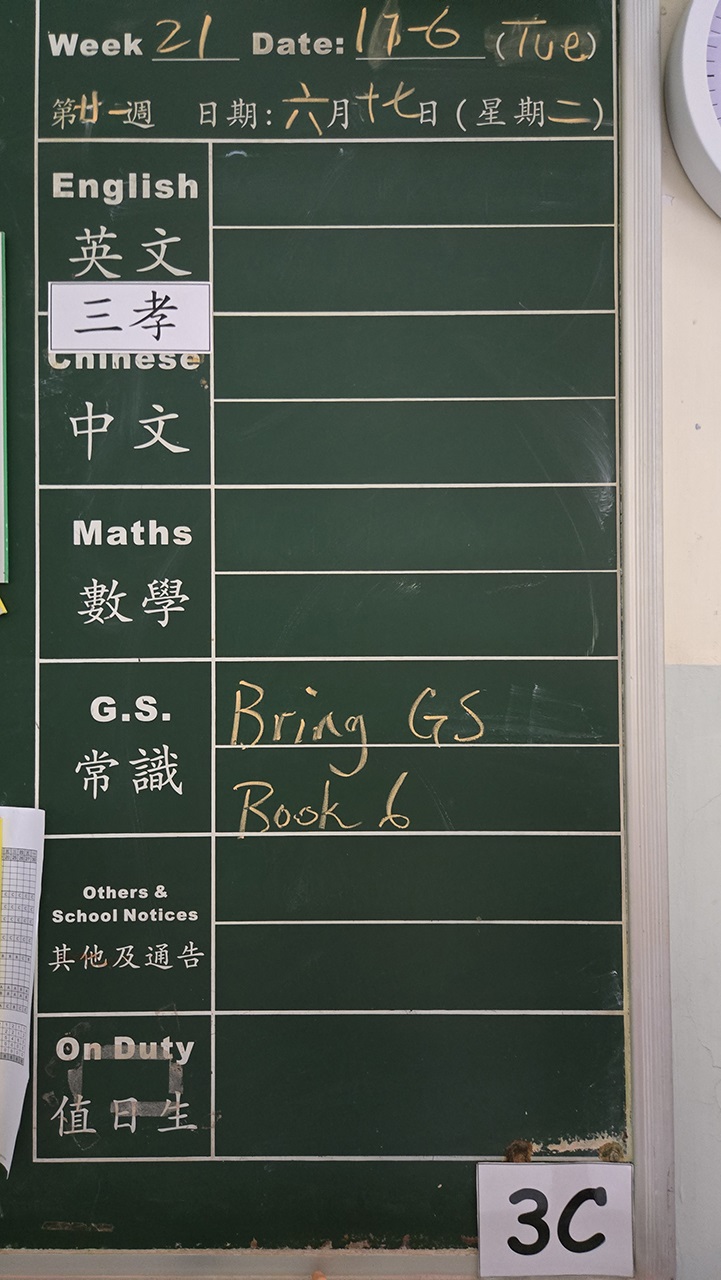 Week 21 Date: 17-6 (Tue)
第廿一週 日期:六月十七日(星期二)
English
英文
三孝
Chinese
中文
Maths
數學
G.S.
Bring GS
常識
Book 6
Others &
School Notices
其他及通告
On Duty
值日生
3C